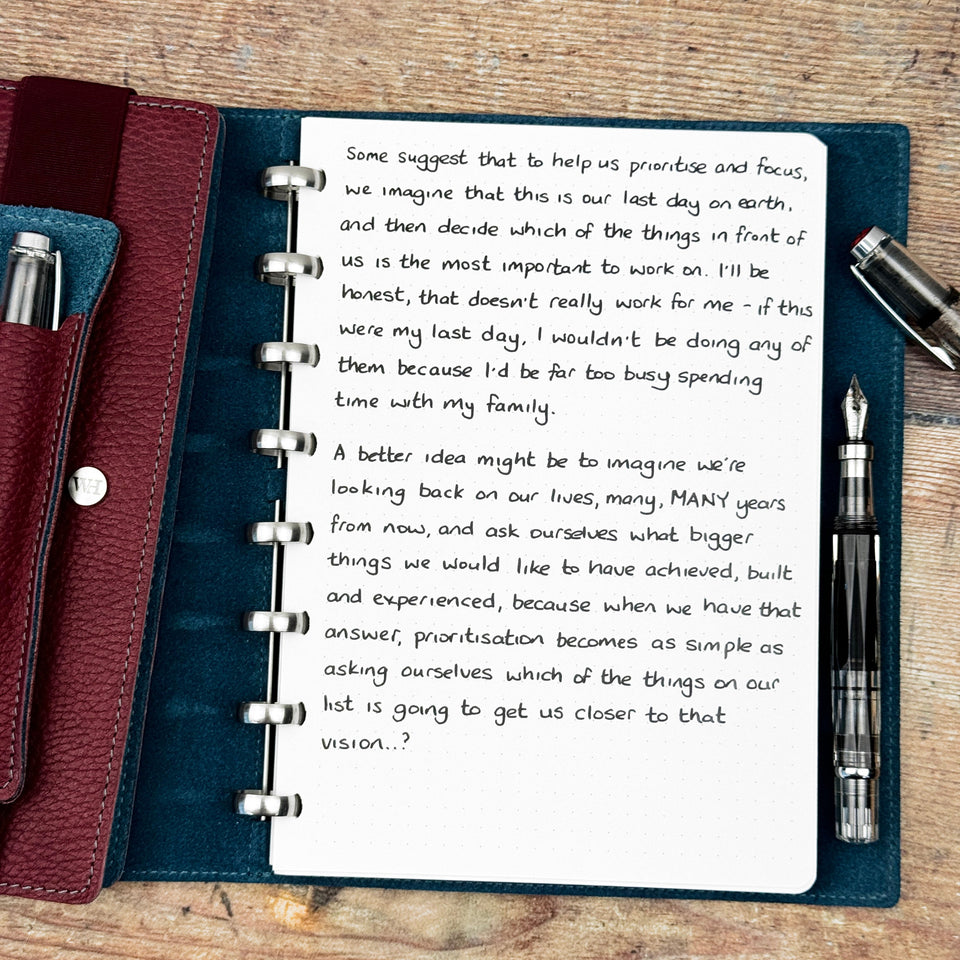 Some suggest that to help us prioritise and focus,
we imagine that this is our last day on earth,
and then decide which of the things in front of
us is the most important to work on. I'll be
honest, that doesn't really work for me - if this
were my last day, I wouldn't be doing any of
them because I'd be far too busy spending
time with my family.
A better idea might be to imagine we're
looking back on our lives, many, MANY years
from now, and ask ourselves what bigger
things we would like to have achieved, built
and experienced, because when we have that
answer, prioritisation becomes as simple as
asking ourselves which of the things on our
list is going to get us closer to that
vision..?
WH